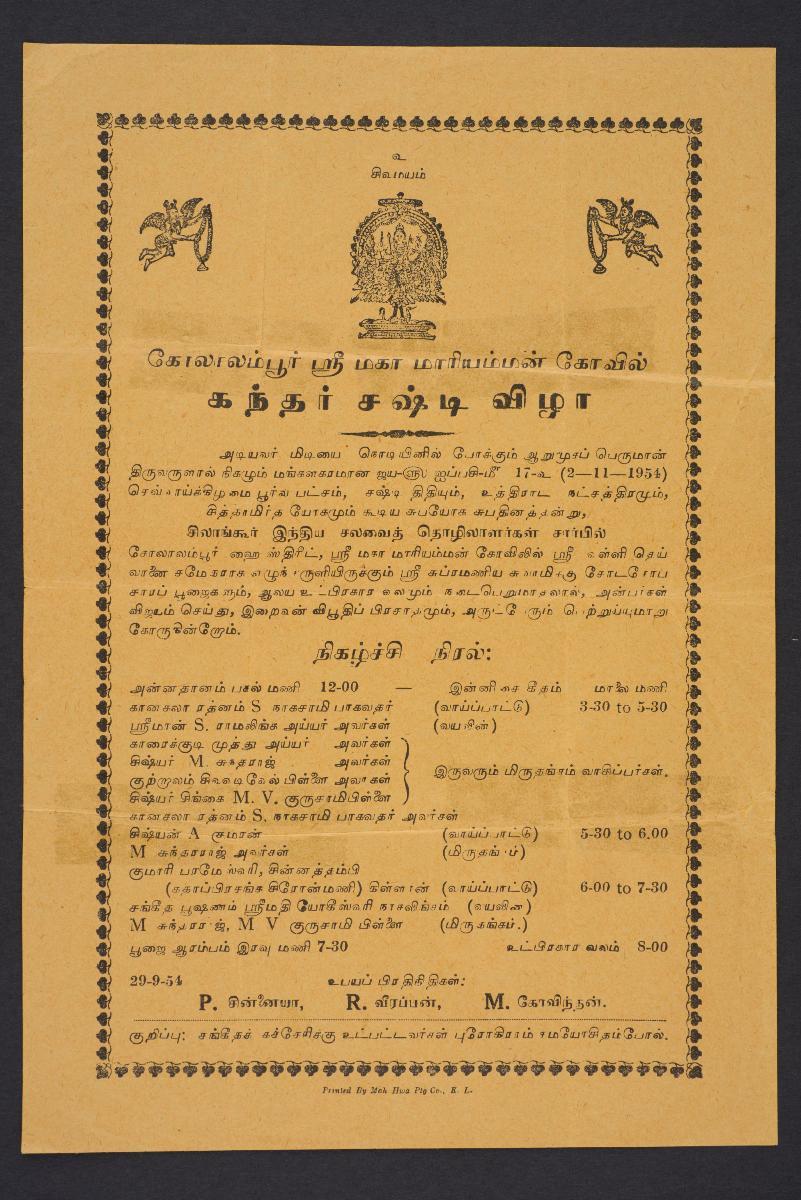 உ
சிவமயம்
கோலாலம்பூர் ஸ்ரீ மகா மாரியம்மன் கோவில்
கந்தர் சஷ்டி விழா
அடியவர் மிடியை கொடியினில் போக்கும் ஆறுமுகப் பெருமான்
திருவருளால் நிகழும் மங்களகரமான ஜய-௵ ஐப்பசி-௴ 17-உ (2—11—1954)
செவ்வாய்க்கிழமை பூர்வ பட்சம், சஷ்டி திதியும், உத்திராட நட்சத்திரமும்,
சித்தாமிர்த யோகமும் கூடிய சுபயோக சுபதினத்தன்று,
சிலாங்கூர் இந்திய சலவைத் தொழிலாளர்கள் சார்பில்
கோலாலம்பூர் ஹை ஸ்திரீட், ஸ்ரீ மகா மாரியம்மன் கோவிலில் ஸ்ரீ வள்ளி தெய்
வானை சமேதராக எழுந்தருளியிருக்கும் ஸ்ரீ சுப்ரமணிய சுவாமிக்கு சோடசோப
சாரப் பூஜைகளும், ஆலய உட்பிரகார வலமும் நடைபெறுமாதலால், அன்பர்கள்
விஜயம் செய்து, இறைவன் விபூதிப் பிரசாதமும், அருட்பேரும் பெற்றுய்யுமாறு
கோருகின்றோம்.
நிகழ்ச்சி நிரல்:
அன்னதானம் பகல் மணி 12-00 — இன்னிசை கீதம் மாலை மணி
கானகலா ரத்னம் S நாகசாமி பாகவதர் (வாய்ப்பாட்டு) 3-30 to 5-30
ஸ்ரீமான் S. ராமலிங்க அய்யர் அவர்கள் (வயலின்)
காரைக்குடி முத்து அய்யர் அவர்கள்
சிஷ்யர் M. சுந்தராஜ் அவர்கள்
குற்றாலம் சிவவடிவேல் பிள்ளை அவர்கள்
சிஷ்யர் சிங்கை M. V. குருசாமிபிள்ளை
இருவரும் மிருதங்கம் வாசிப்பர்கள்.
கானகலா ரத்னம் S. நாகசாமி பாகவதர் அவர்கள்
சிஷ்யன் A குமரன் (வாய்ப்பாட்டு) 5-30 to 6.00
M சுந்தரராஜ் அவர்கள் (மிருதங்கம்)
குமாரி பரமேஸ்வரி, சின்னத்தம்பி
(கதாப்பிரசங்க சிரோன்மணி) (வாய்ப்பாட்டு) 6-00 to 7-30
சங்கீத பூஷணம் ஸ்ரீமதி யோகீஸ்வரி நாகலிங்கம் (வயலின்)
M சுந்தரராஜ், M V குருசாமி பிள்ளை (மிருதங்கம்.)
பூஜை ஆரம்பம் இரவு மணி 7-30 உட்பிரகார வலம் 8-00
29-9-54 உபயப் பிரதிநிதிகள்:
P. சின்னையா, R. வீரப்பன், M. கோவிந்தன்.
குறிப்பு: சங்கீதக் கச்சேரிக்கு உட்பட்டவர்கள் புரோகிராம் சமயோசிதம்போல்.
Printed By Moh Hwa Ptg Co., K. L.